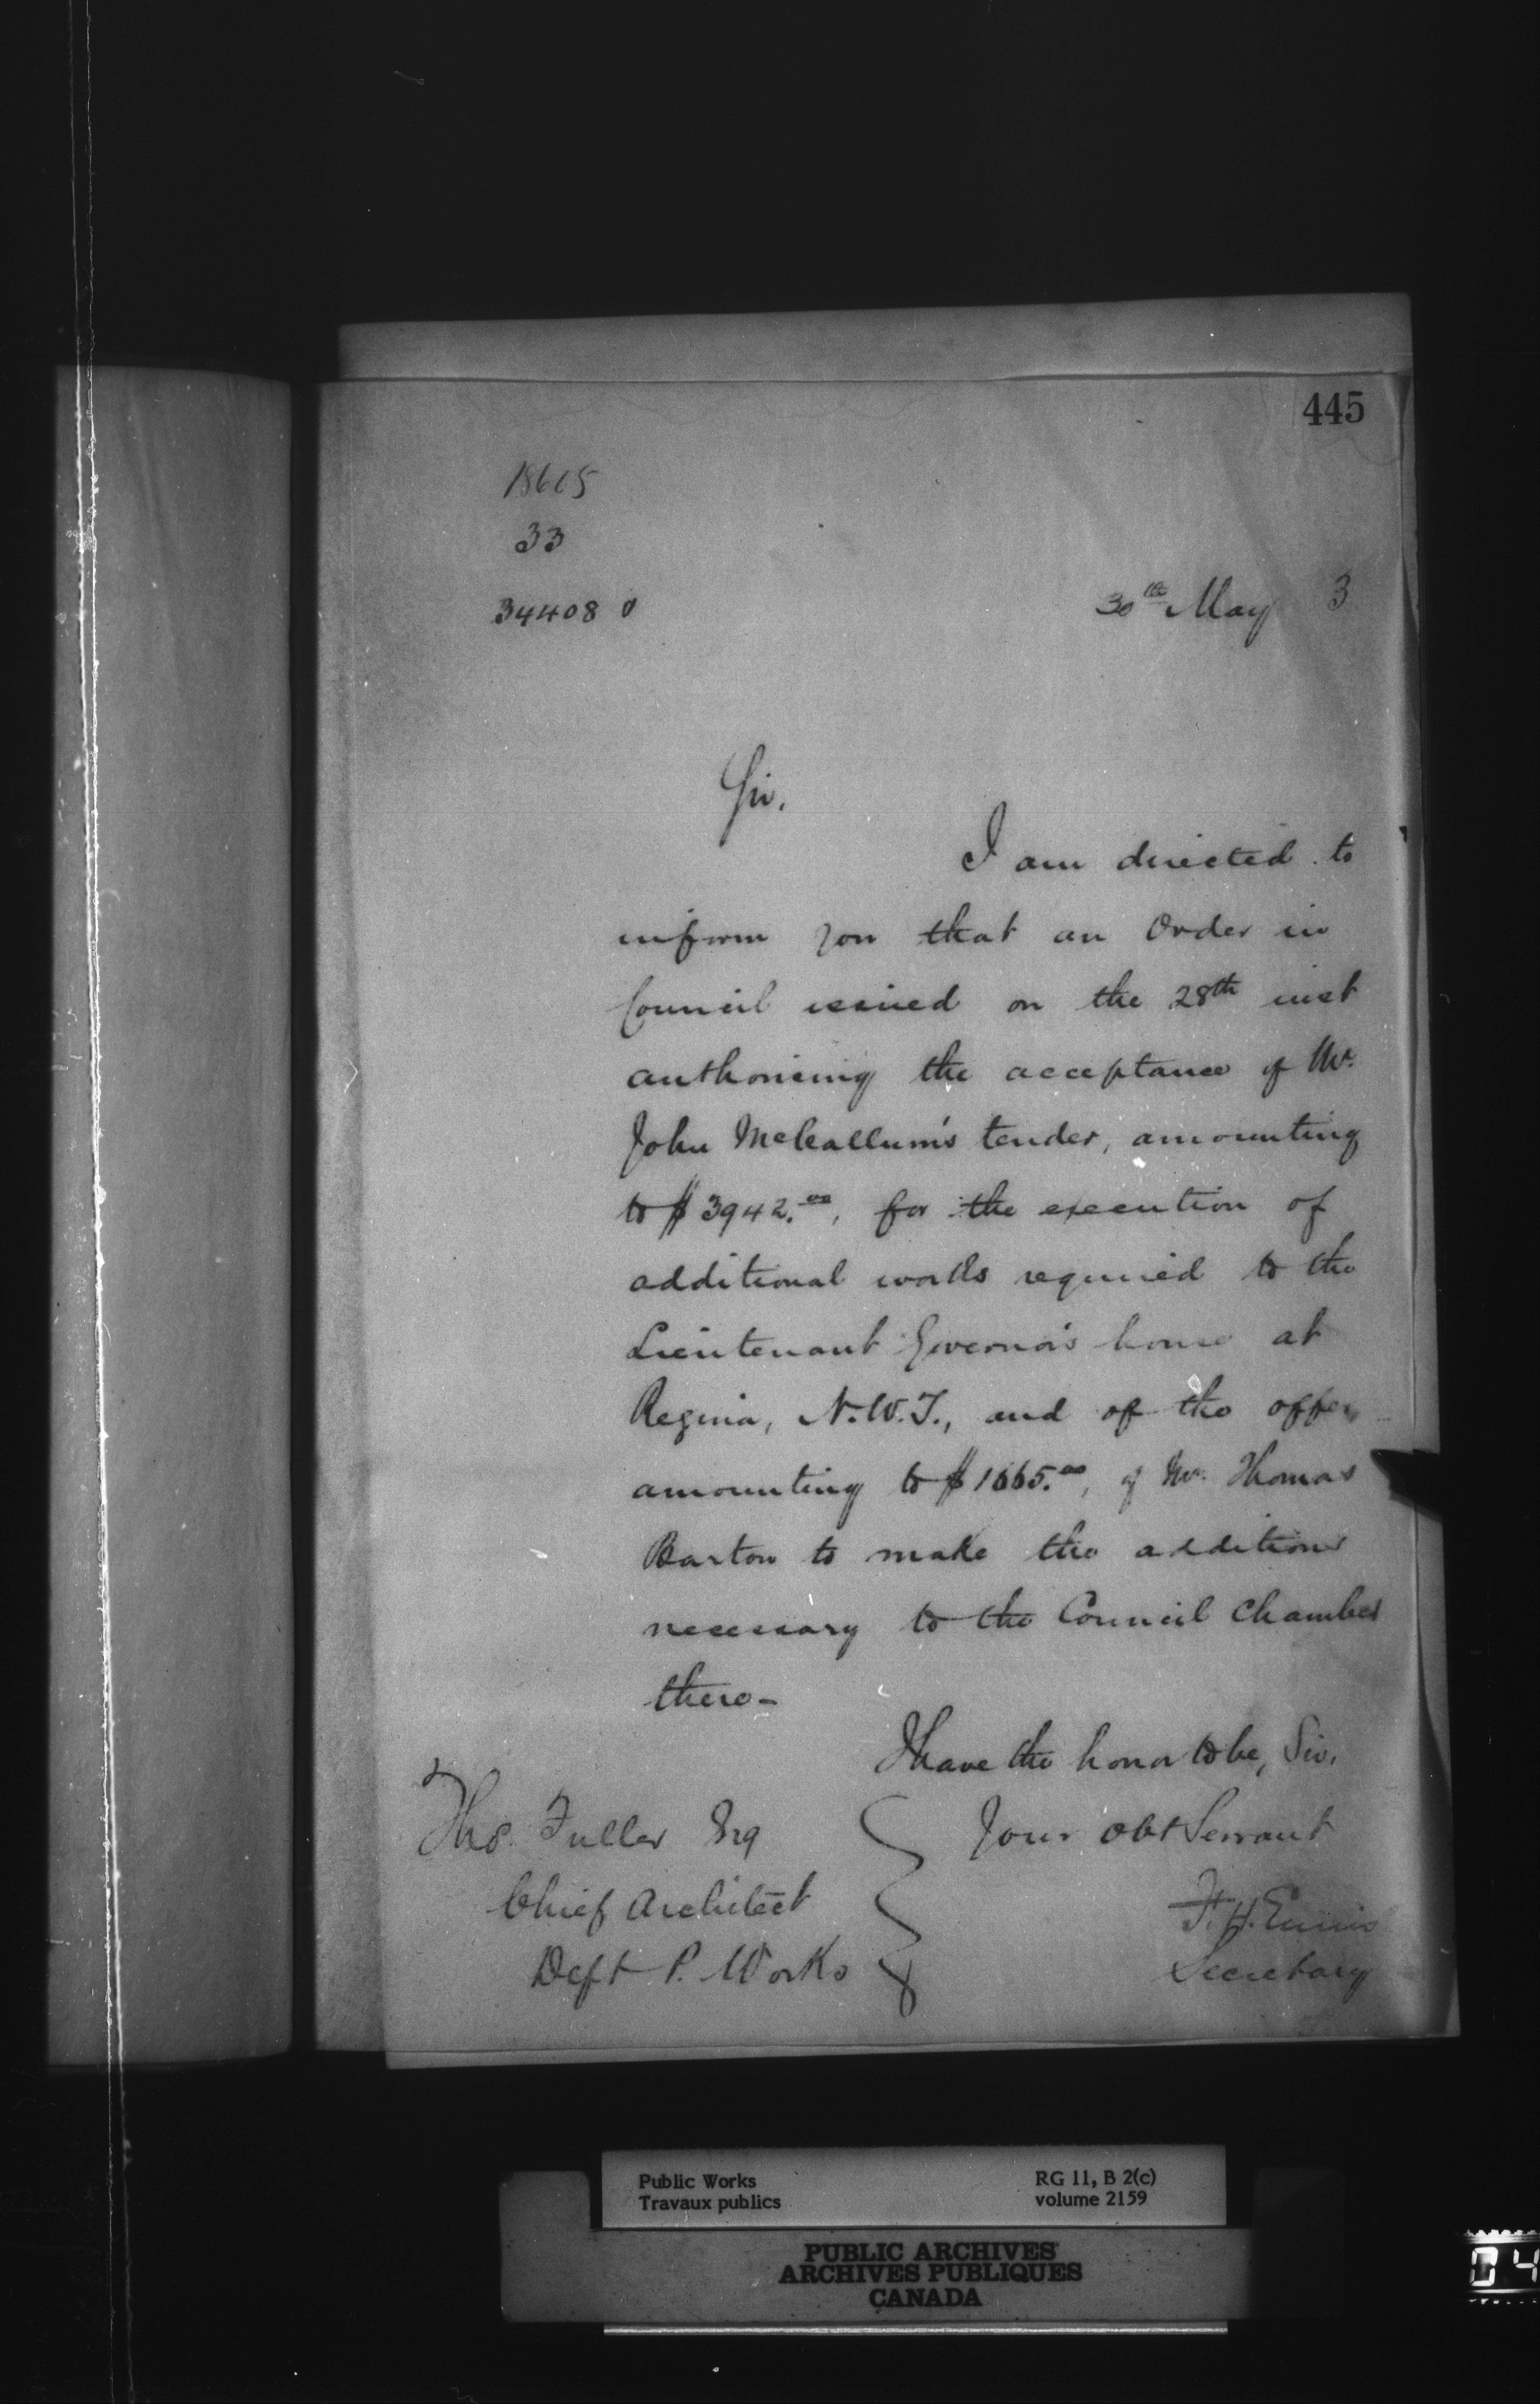 445
18615
33
34408 0
30th May 3
Sir,
I am directed to
inform you that an Order in
Council issued on the 28th inst
authorising the acceptance of Mr.
John McCallum's tender, amounting
to $3942.00, for the execution of
additional works required to the
Lieutenant Governor's house at
Regina, N.W.T., and of the offer,
amounting to $1665.00, of Mr. Thomas
Barton to make the additions
necessary to the Council Chamber
there—
I have the honor to be, Sir,
Your obt Servant
F. H. Ennis
Secretary
Thos. Fuller Esq
Chief Architect
Dept P. Works
Public Works
Travaux publics
RG 11, B 2(c)
volume 2159
PUBLIC ARCHIVES
ARCHIVES PUBLIQUES
CANADA
04